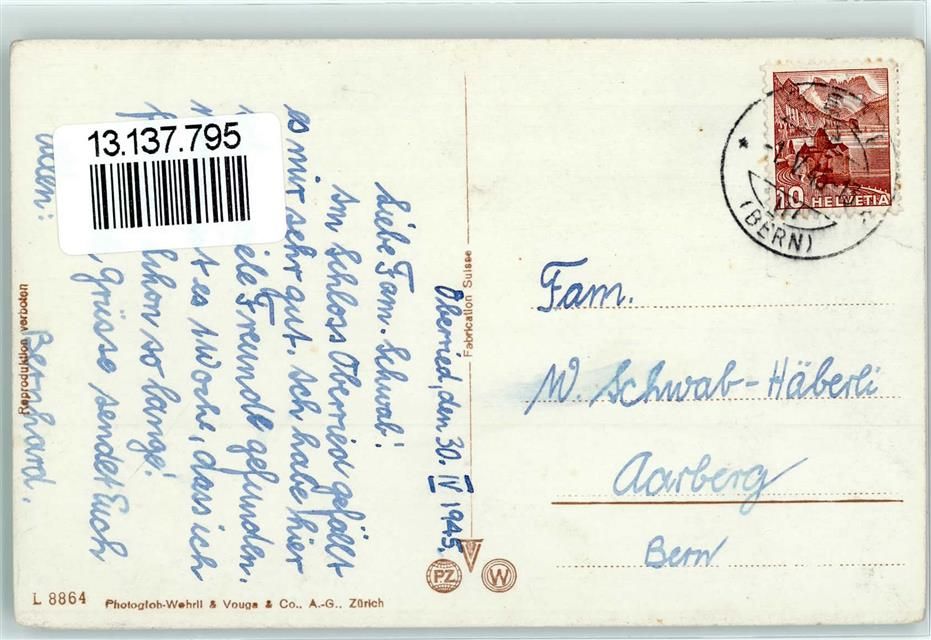 13.137.795
Oberried, den 30. IV 1945.
Liebe Fam. Schwab!
Im Schloss Oberried gefällt
es mir sehr gut. Ich habe hier
ele Freunde gefunden.
t es 1 Woche, dass ich
schon so lange!
Grüsse sendet Euch
allen:
Bernhard.
Fabrication Suisse
Reproduktion verboten
10 HELVETIA
(BERN)
Fam.
W. Schwab-Häberli
Aarberg
Bern
PZ
W
L 8864 Photogloh-Wehrli & Vouga & Co., A.-G., Zürich